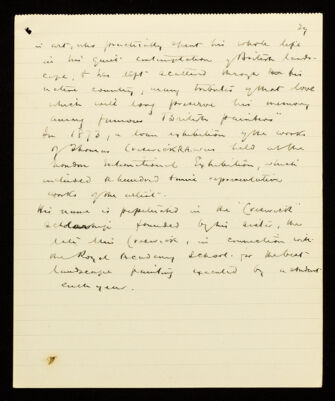 in art, who practically spent his whole life
in his quiet contemplation of British lands-
cape, & has left scattered through his
native country, many tributes of that love
which will long preserve his memory
among famous British painters"
In 1873, a loan exhibition of the works
of Thomas Creswick R.A. was held at the
London International Exhibition, which
included a hundred & nine representative
works of the artist.
His name is perpetuated in the "Creswick"
scholarship founded by his sister, the
late Miss Creswick, in connection with
the Royal Academy School. for the best
landscape painting executed by a student
each year.